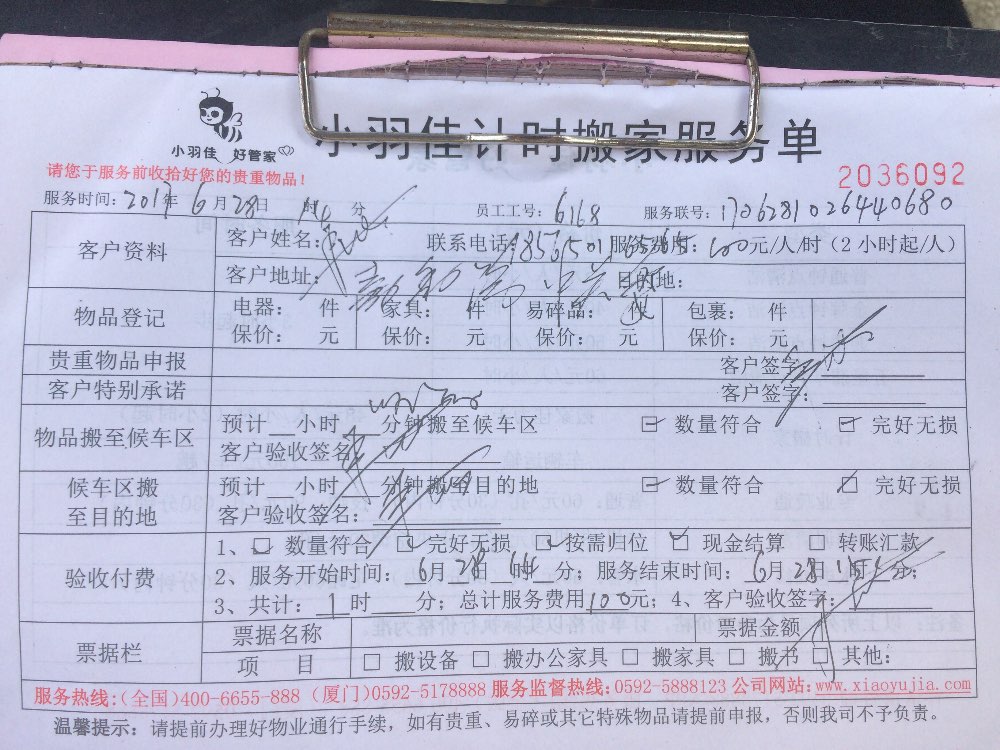 小羽佳 好管家
小羽佳计时搬家服务单
请您于服务前收拾好您的贵重物品！
2036092
服务时间：2017年 6月28日 分 员工工号：6168 服务联号：170628102644068​0
客户资料 客户姓名： 联系电话： 服务费用：100元/人/时（2小时起/人）
客户地址： 目的地：
物品登记 电器： 件 家具： 件 易碎品： 件 包裹： 件
保价： 元 保价： 元 保价： 元 保价： 元
贵重物品申报 客户签字：
客户特别承诺 客户签字：
物品搬至候车区 预计 小时 分钟搬至候车区 数量符合 完好无损
客户验收签名：
候车区搬至目的地 预计 小时 分钟搬至目的地 数量符合 完好无损
客户验收签名：
验收付费 1、 数量符合 完好无损 按需归位 现金结算 转账汇款
2、服务开始时间：6月28日 时 分；服务结束时间：6月28日 时 分；
3、共计：1时 分；总计服务费用100元；4、客户验收签字：
票据栏 票据名称 票据金额
项 目 搬设备 搬办公家具 搬家具 搬书 其他：
服务热线：(全国)400-6655-888 (厦门)0592-5178888 服务监督热线：0592-5888123 公司网站：www.xiaoyujia.com
温馨提示：请提前办理好物业通行手续，如有贵重、易碎或其它特殊物品请提前申报，否则我司不予负责。